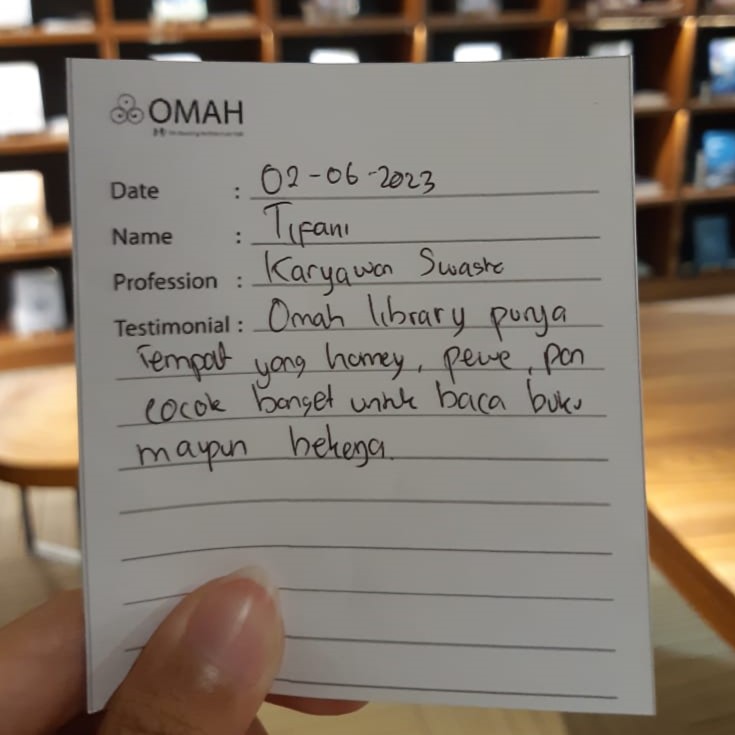 OMAH
Date : 02-06-2023
Name : Tifani
Profession : Karyawan Swasta
Testimonial : Omah library punya
tempat yang homey, pewe, dan
cocok banget untuk baca buku
maupun bekerja.